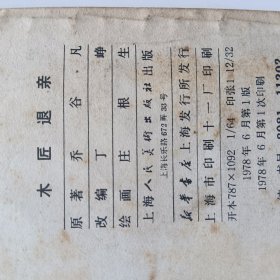 木匠退亲
原著 乔谷凡
改编 丁峥
绘画 庄根生
上海人民美术出版社出版
上海长乐路672弄33号
新华书店上海发行所发行
上海市印刷十一厂印刷
开本787×1092 1/64 印张1 12/32
1978年6月第1版
1978年6月第1次印刷